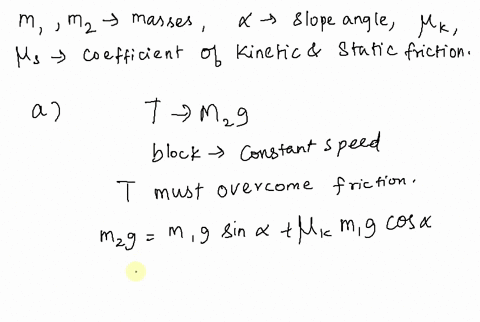 m₁, m₂ → masses, α → slope angle, μₖ,
μₛ → coefficient of kinetic & static friction.
a) T → m₂g
block → constant speed
T must overcome friction.
m₂g = m₁g sin α + μₖ m₁g cos α